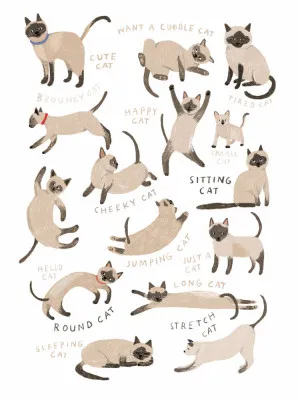 WANT A CUDDLE CAT
CUTE
CAT
BOUNCY CAT
HAPPY
CAT
TIRED CAT
CAT
SITTING
CAT
CHEEKY CAT
HELLO
CAT
JUMPING CAT
JUST A
CAT
LONG CAT
ROUND CAT
STRETCH
CAT
SLEEPING
CAT